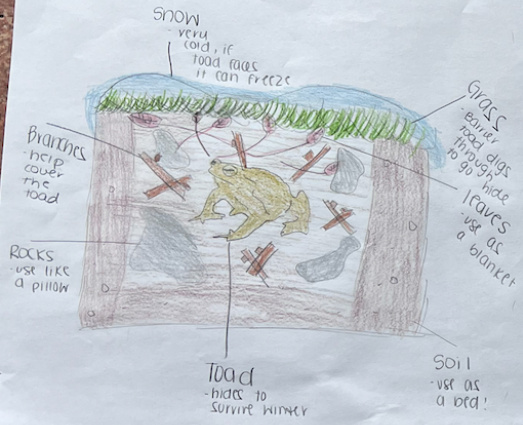 snow
- very
cold, if
toad faces
it can freeze
Grass
- Barrier
toad digs
through
to go hide
Branches
- help
cover
the
toad
leaves
- use as
a blanket
Rocks
- use like
a pillow
Toad
- hides to
survive winter
soil
- use as
a bed!